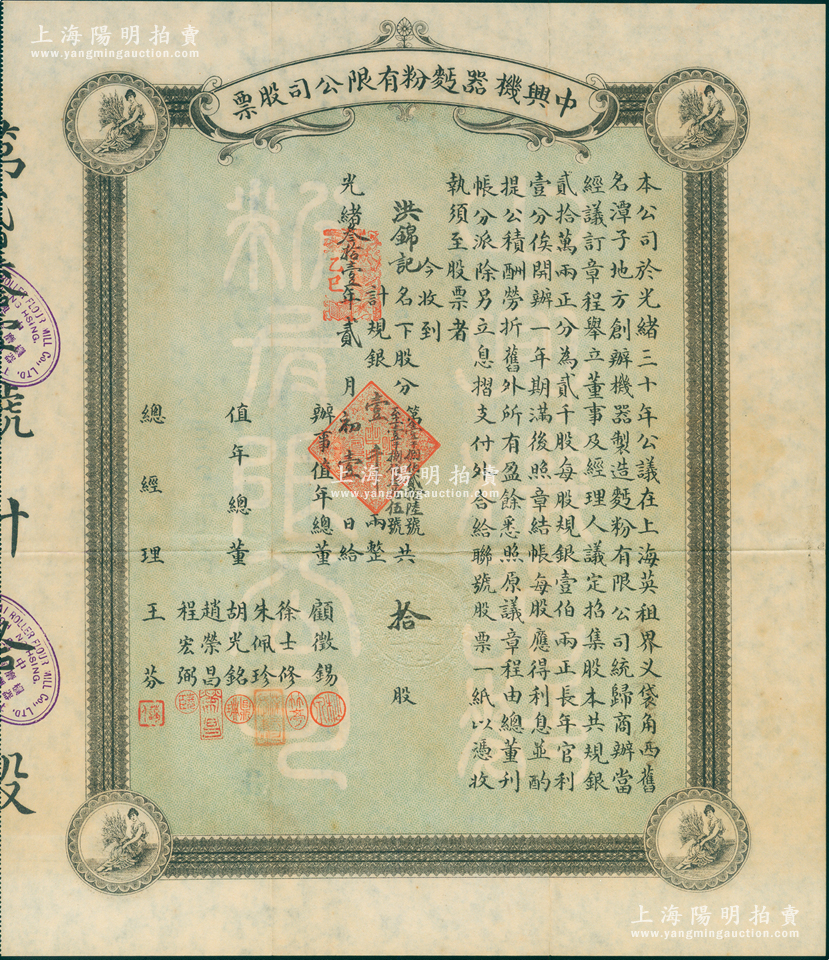 上海陽明拍賣
www.yangmingauction.com
中興機器麪粉有限公司股票
本公司於光緒三十年公議在上海英租界叉袋角西舊
名潭子地方創辦機器製造麪粉有限公司統歸商辦當
經議訂章程舉立董事及經理人議定招集股本共規銀
貳拾萬兩正分為貳千股每股規銀壹伯兩正長年官利
壹分俟開辦一年期滿後照章結帳每股應得利息並酌
提公積酬勞折舊外所有盈餘悉照原議章程由總董刋
帳分派除另立息摺支付外合給聯號股票一紙以憑收
執須至股票者
今收到
洪錦記名下股分
共拾股
計規銀壹千兩整
光緒叁拾壹年貳月初壹日給
乙巳
辦事值年總董 顧徵錫
徐士修
朱佩珍
值年總董 胡光銘
趙榮昌
程宏弼
總經理 王芬
第 號 計 股
ROLLER FLOUR MILL Co., LTD.
HSING.
ROLLER FLOUR MILL Co., LTD.
HSING.
上海陽明拍賣
www.yangmingauction.com
上海陽明拍賣
www.yangmingauction.com